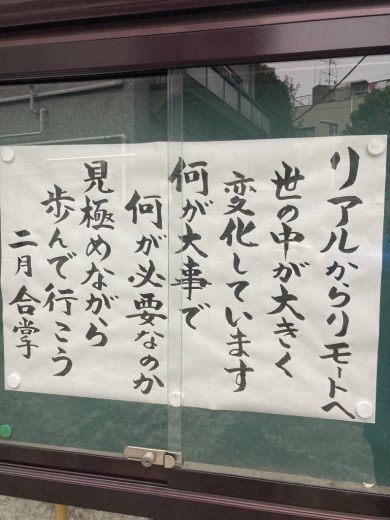 リアルからリモートへ
世の中が大きく
変化しています
何が大事で
何が必要なのか
見極めながら
歩んで行こう
二月 合掌